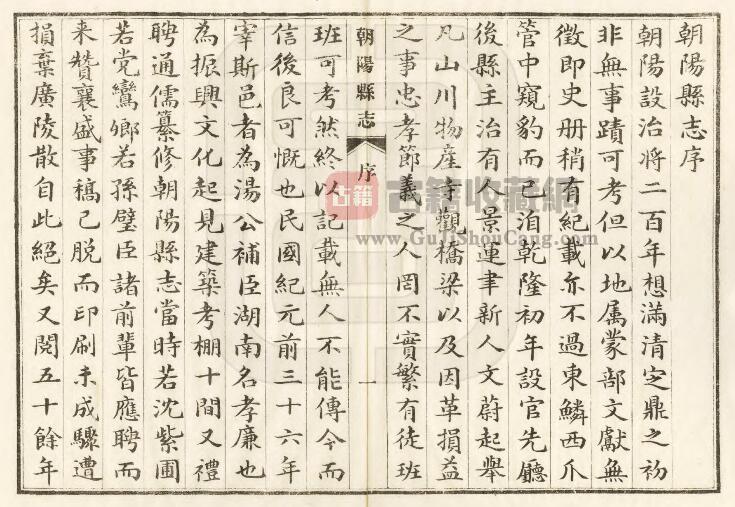 朝陽縣志序
朝陽設治將二百年想滿清定鼎之初
非無事蹟可考但以地属蒙部文獻無
徵即史册稍有紀載亦不過東鱗西爪
管中窺豹而已洎乾隆初年設官先廳
後縣主治有人景運聿新人文蔚起舉
凡山川物產寺觀橋梁以及因革損益
之事忠孝節義之人罔不實繁有徒班
朝陽縣志
序
一
班可考然終以記載無人不能傳今而
信後良可慨也民國紀元前三十六年
宰斯邑者為湯公補臣湖南名孝廉也
為振興文化起見建築考棚十間又禮
聘通儒纂修朝陽縣志當時若沈紫圃
若党鸞鄉若孫璧臣諸前輩皆應聘而
来贊襄盛事稿已脱而印刷未成驟遭
損棄廣陵散自此絕矣又閱五十餘年
古籍
古籍收藏網
www.GujiShouCang.com